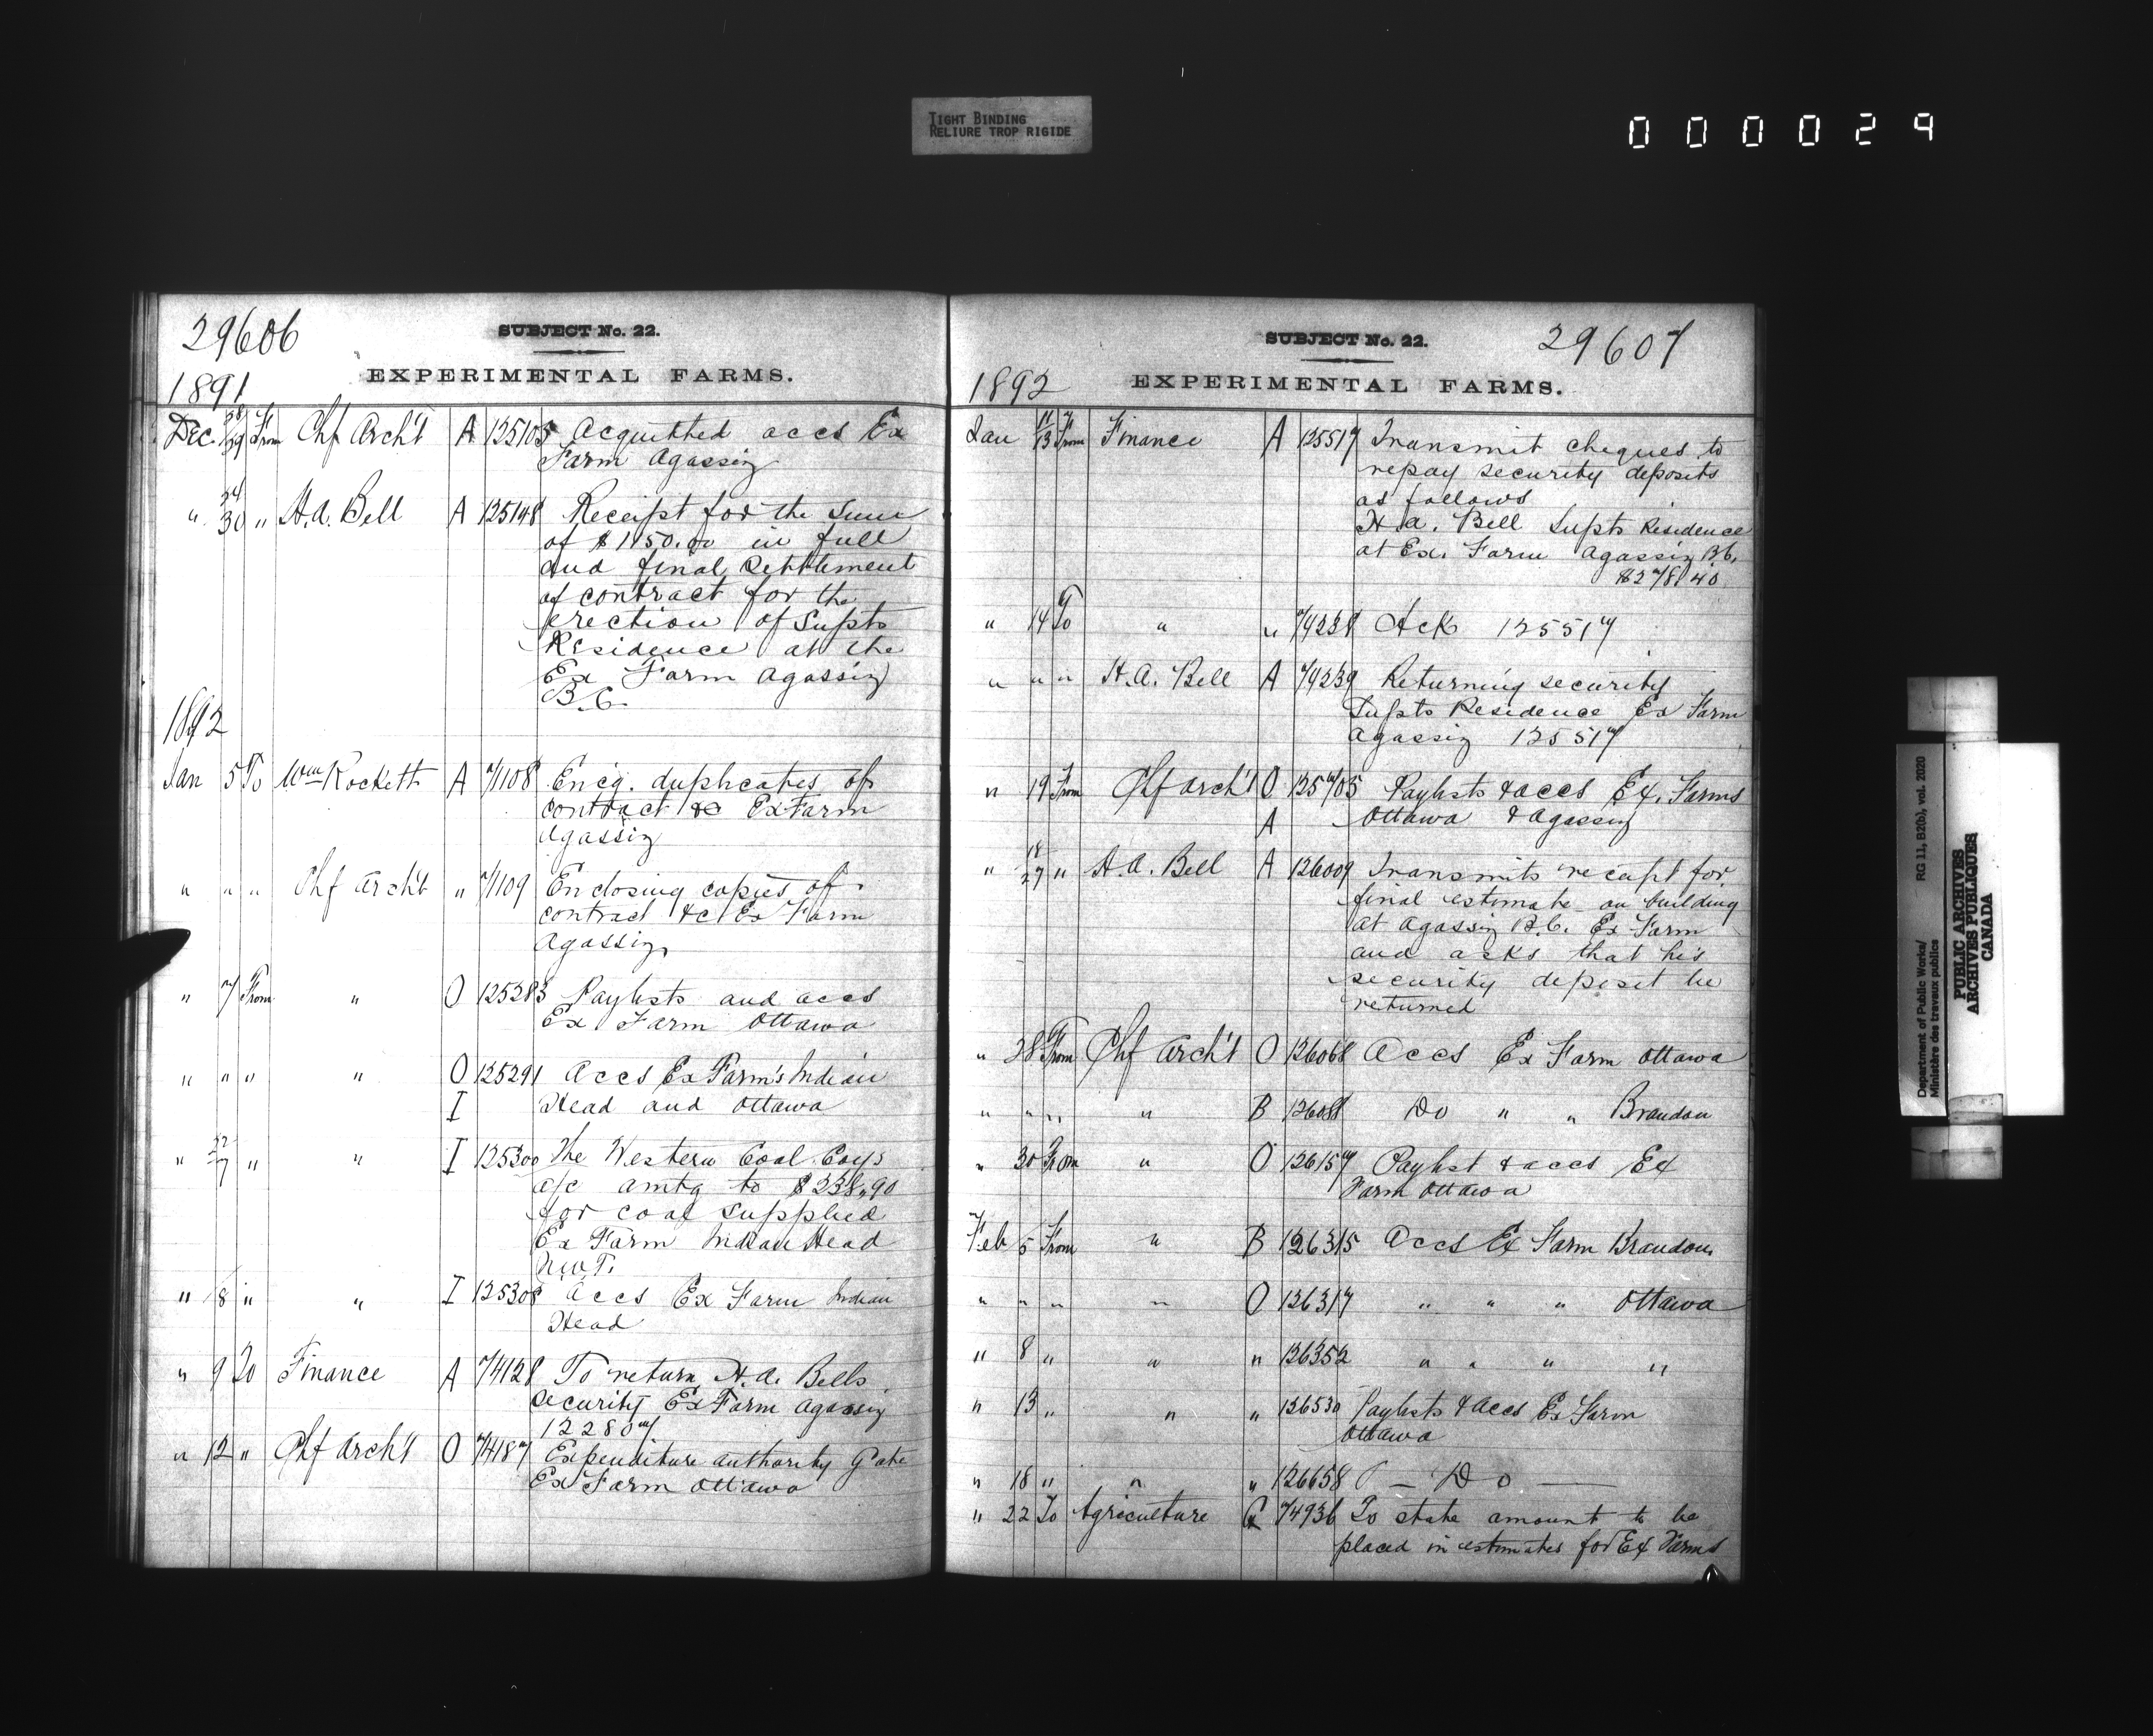 TIGHT BINDING
RELIURE TROP RIGIDE
000029
29606
SUBJECT No. 22.
EXPERIMENTAL FARMS.
1891
Dec 28/29 From Chf Arch't A 125105 Acquitted accs Ex
Farm Agassiz
" 24/30 " H.A. Bell A 125148 Receipt for the sum
of $1150.00 in full
and final settlement
of contract for the
erection of Supts
Residence at the
Ex Farm Agassiz
B.C.
1892
Jan 5 To Wm Rockett A 71108 Encg. duplicates of
contract &c Ex Farm
Agassiz
" " " Chf Arch't " 71109 Enclosing copies of
contract &c Ex Farm
Agassiz
" 7 From " O 125283 Paylists and accs
Ex Farm Ottawa
" " " " O 125291 Accs Ex Farm's Indian
I Head and Ottawa
" 22/7 " " I 125300 The Western Coal Coys
a/c amtg to $238.90
for coal supplied
Ex Farm Indian Head
N.W.T.
" 8 " " I 125308 Accs Ex Farm Indian
Head
" 9 To Finance A 74128 To return H.A. Bells
security Ex Farm Agassiz
122807
" 12 " Chf Arch't O 74187 Expenditure authority Gate
Ex Farm Ottawa
SUBJECT No. 22.
29607
EXPERIMENTAL FARMS.
1892
Jan 11/13 From Finance A 125517 Transmit cheques to
repay security deposits
as follows
H.A. Bell Supts Residence
at Ex. Farm Agassiz B.C.
$278.40
" 14 To " " 74238 Ack 125517
" " " H.A. Bell A 74239 Returning security
Supts Residence Ex Farm
Agassiz 125517
" 19 From Chf Arch't O 125705 Paylists & accs Ex. Farms
A Ottawa & Agassiz
" 18/27 " H.A. Bell A 126009 Transmits receipt for
final estimate on building
at Agassiz B.C. Ex Farm
and asks that his
security deposit be
returned
" 28 From Chf Arch't O 126068 Accs Ex Farm Ottawa
" " " " B 126081 Do " " Brandon
" 30 From " O 126157 Paylist & accs Ex
Farm Ottawa
Feb 5 From " B 126315 Accs Ex Farm Brandon
" " " " O 126317 " " " Ottawa
" 8 " " " 126352 " " " "
" 13 " " " 126530 Paylists & Accs Ex Farm
Ottawa
" 18 " " " 126658 — Do —
" 22 To Agriculture G 74936 To state amount to be
placed in estimates for Ex Farms
Department of Public Works/ RG 11, B2(b), vol. 2020
Ministère des travaux publics
PUBLIC ARCHIVES
ARCHIVES PUBLIQUES
CANADA